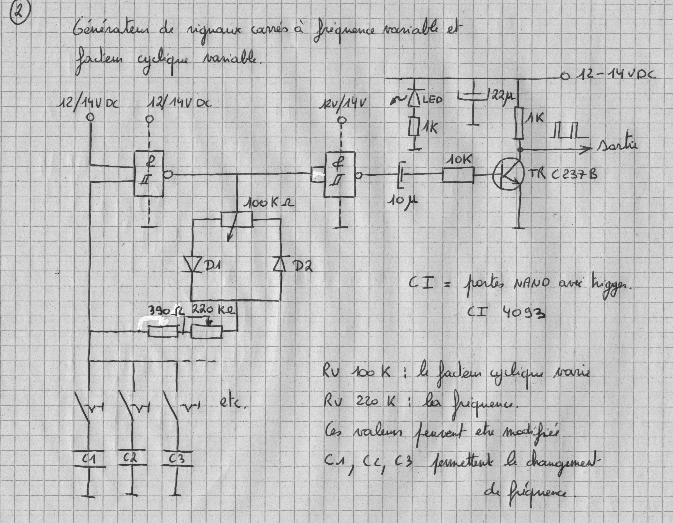 2
Générateur de signaux carrés à fréquence variable et
facteur cyclique variable.
12/14VDC
12/14VDC
12V/14V
12-14VDC
LED
22µ
1K
1K
&
&
sortie
10K
10µ
TR C237B
100KΩ
D1
D2
390Ω
220KΩ
CI = portes NAND avec trigger.
CI 4093
etc.
C1
C2
C3
RV 100K : le facteur cyclique varie
RV 220K : la fréquence.
Ces valeurs peuvent etre modifiée
C1, C2, C3 permettent le changement
de fréquence.